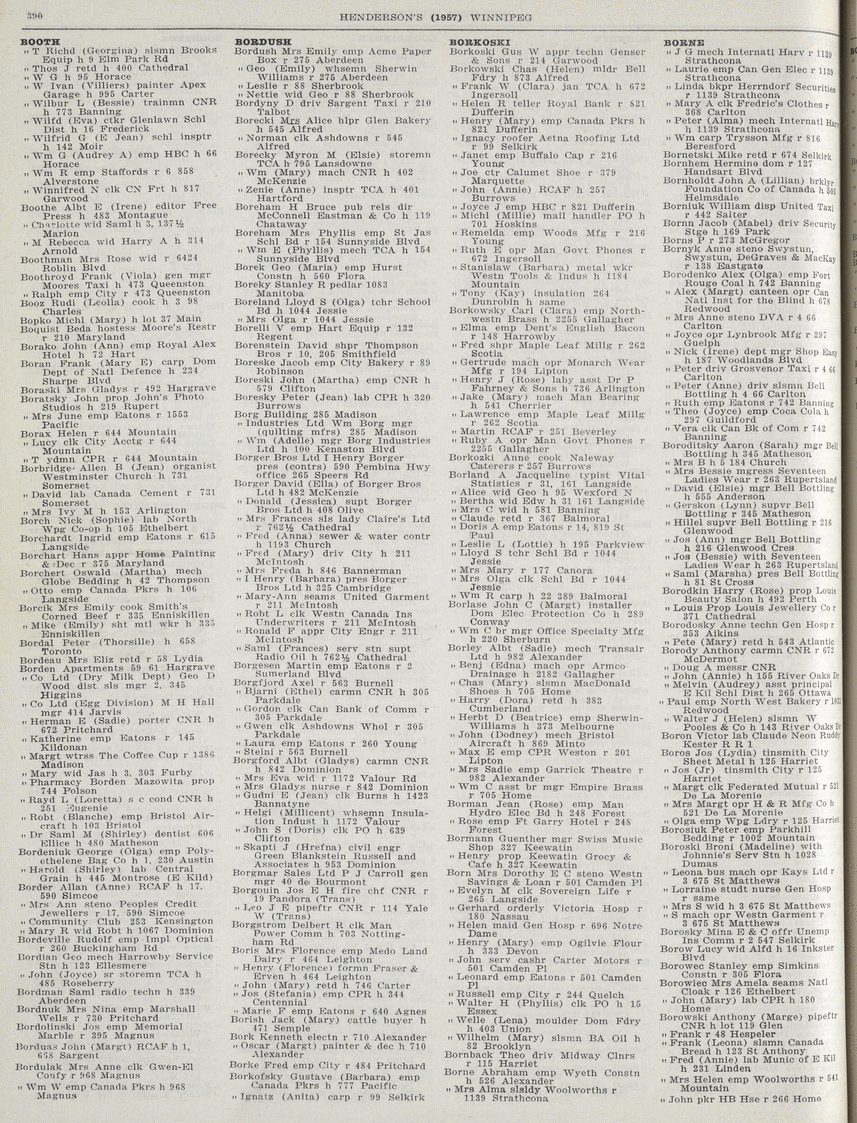 390
HENDERSON'S (1957) WINNIPEG
BOOTH
" T Richd (Georgina) slsmn Brooks
Equip h 9 Elm Park Rd
" Thos J retd h 400 Cathedral
" W G h 95 Horace
" W Ivan (Villiers) painter Apex
Garage h 995 Carter
" Wilbur L (Bessie) trainmn CNR
h 773 Banning
" Wilfd (Eva) ctkr Glenlawn Schl
Dist h 16 Frederick
" Wilfrid G (E Jean) schl insptr
h 142 Moir
" Wm G (Audrey A) emp HBC h 66
Horace
" Wm R emp Staffords r 6 858
Alverstone
" Winnifred N clk CN Frt h 817
Garwood
Boothe Albt E (Irene) editor Free
Press h 483 Montague
" Charlotte wid Saml h 3, 137½
Marion
" M Rebecca wid Harry A h 314
Arnold
Boothman Mrs Rose wid r 6424
Roblin Blvd
Boothroyd Frank (Viola) gen mgr
Moores Taxi h 473 Queenston
" Ralph emp City r 473 Queenston
Booz Rudi (Leolla) cook h 3 98
Charles
Bopko Michl (Mary) h lot 37 Main
Boquist Beda hostess Moore's Restr
r 210 Maryland
Borako John (Ann) emp Royal Alex
Hotel h 72 Hart
Boran Frank (Mary E) carp Dom
Dept of Natl Defence h 234
Sharpe Blvd
Boraski Mrs Gladys r 492 Hargrave
Boratsky John prop John's Photo
Studios h 219 Rupert
" Mrs June emp Eatons r 1553
Pacific
Borax Helen r 644 Mountain
" Lucy clk City Acctg r 644
Mountain
" T ydmn CPR r 644 Mountain
Borbridge Allen B (Jean) organist
Westminster Church h 731
Somerset
" David lab Canada Cement r 731
Somerset
" Mrs Ivy M h 153 Arlington
Borch Nick (Sophie) lab North
Wpg Co-op h 105 Ethelbert
Borchardt Ingrid emp Eatons r 615
Langside
Borchart Hans appr Home Painting
& Dec r 375 Maryland
Borchert Oswald (Martha) mech
Globe Bedding h 42 Thompson
" Otto emp Canada Pkrs h 106
Langside
Borcik Mrs Emily cook Smith's
Corned Beef r 335 Enniskillen
" Mike (Emily) sht mtl wkr h 335
Enniskillen
Bordal Peter (Thorsille) h 658
Toronto
Bordeau Mrs Eliz retd r 58 Lydia
Borden Apartments 59 61 Hargrave
" Co Ltd (Dry Milk Dept) Geo D
Wood dist sls mgr 2, 345
Higgins
" Co Ltd (Egg Division) M H Hall
mgr 414 Jarvis
" Herman E (Sadie) porter CNR h
672 Pritchard
" Katherine emp Eatons r 145
Kildonan
" Margt wtrss The Coffee Cup r 1386
Madison
" Mary wid Jas h 3, 303 Furby
" Pharmacy Borden Mazowita prop
744 Polson
" Rayd L (Loretta) s c cond CNR h
251 Eugenie
" Robt (Blanche) emp Bristol Air-
craft h 103 Bristol
" Dr Saml M (Shirley) dentist 606
Ellice h 480 Matheson
Bordeniuk George (Olga) emp Poly-
ethelene Bag Co h 1, 230 Austin
" Harold (Shirley) lab Central
Grain h 445 Montrose (E Kild)
Border Allan (Anne) RCAF h 17,
590 Simcoe
" Mrs Ann steno Peoples Credit
Jewellers r 17, 590 Simcoe
" Community Club 253 Kensington
" Mary R wid Robt h 1067 Dominion
Bordeville Rudolf emp Impl Optical
r 260 Buckingham Rd
Bordian Geo mech Harrowby Service
Stn h 123 Ellesmere
" John (Joyce) sr storemn TCA h
485 Roseberry
Bordman Saml radio techn h 339
Aberdeen
Bordnuk Mrs Nina emp Marshall
Wells r 730 Pritchard
Bordolinski Jos emp Memorial
Marble r 395 Magnus
Borduas John (Margt) RCAF h 1,
658 Sargent
Bordulak Mrs Anne clk Gwen-El
Confy r 968 Magnus
" Wm W emp Canada Pkrs h 968
Magnus
BORDUSH
Bordush Mrs Emily emp Acme Paper
Box r 275 Aberdeen
" Geo (Emily) whsemn Sherwin
Williams r 275 Aberdeen
" Leslie r 88 Sherbrook
" Nettie wid Geo r 88 Sherbrook
Bordyny D driv Sargent Taxi r 210
Talbot
Borecki Mrs Alice hlpr Glen Bakery
h 545 Alfred
" Norman clk Ashdowns r 545
Alfred
Borecky Myron M (Elsie) storemn
TCA h 795 Lansdowne
" Wm (Mary) mach CNR h 402
McKenzie
" Zenie (Anne) insptr TCA h 401
Hartford
Boreham H Bruce pub rels dir
McConnell Eastman & Co h 119
Chataway
Boreham Mrs Phyllis emp St Jas
Schl Bd r 154 Sunnyside Blvd
" Wm E (Phyllis) mech TCA h 154
Sunnyside Blvd
Borek Geo (Maria) emp Hurst
Constn h 560 Flora
Boreky Stanley R pedlar 1083
Manitoba
Boreland Lloyd S (Olga) tchr School
Bd h 1044 Jessie
" Mrs Olga r 1044 Jessie
Borelli V emp Hart Equip r 132
Regent
Borenstein David shpr Thompson
Bros r 10, 205 Smithfield
Boreske Jacob emp City Bakery r 89
Robinson
Boreski John (Martha) emp CNR h
579 Clifton
Boresky Peter (Jean) lab CPR h 320
Burrows
Borg Building 285 Madison
" Industries Ltd Wm Borg mgr
(quilting mfrs) 285 Madison
" Wm (Adelle) mgr Borg Industries
Ltd h 100 Kenaston Blvd
Borger Bros Ltd I Henry Borger
pres (contrs) 590 Pembina Hwy
office 265 Speers Rd
Borger David (Ella) of Borger Bros
Ltd h 482 McKenzie
" Donald (Jessica) supt Borger
Bros Ltd h 408 Olive
" Mrs Frances sls lady Claire's Ltd
r 762½ Cathedral
" Fred (Anna) sewer & water contr
h 1193 Church
" Fred (Mary) driv City h 211
McIntosh
" Mrs Freda h 846 Bannerman
" I Henry (Barbara) pres Borger
Bros Ltd h 325 Cambridge
" Mary-Ann seams United Garment
r 211 McIntosh
" Robt L clk Westn Canada Ins
Underwriters r 211 McIntosh
" Ronald F appr City Engr r 211
McIntosh
" Saml (Frances) serv stn supt
Radio Oil h 762½ Cathedral
Borgesen Martin emp Eatons r 2
Sumerland Blvd
Borgfjord Axel r 563 Burnell
" Bjarni (Ethel) carmn CNR h 305
Parkdale
" Gordon clk Can Bank of Comm r
305 Parkdale
" Gwen clk Ashdowns Whol r 305
Parkdale
" Laura emp Eatons r 260 Young
" Steini r 563 Burnell
Borgford Albt (Gladys) carmn CNR
h 842 Dominion
" Mrs Eva wid r 1172 Valour Rd
" Mrs Gladys nurse r 842 Dominion
" Gudni E (Jean) clk Burns h 1423
Bannatyne
" Helgi (Millicent) whsemn Insula-
tion Indust h 1172 Valour
" John S (Doris) clk PO h 639
Clifton
" Skapti J (Hrefna) civil engr
Green Blankstein Russell and
Associates h 953 Dominion
Borgmar Sales Ltd P J Carroll gen
mgr 40 de Bourmont
Borgouin Jos E H fire chf CNR r
19 Pandora (Trans)
" Leo J E pipeftr CNR r 114 Yale
W (Trans)
Borgstrom Delbert R clk Man
Power Comm h 703 Notting-
ham Rd
Boris Mrs Florence emp Medo Land
Dairy r 464 Leighton
" Henry (Florence) formn Fraser &
Erven h 464 Leighton
" John (Mary) retd h 746 Carter
" Jos (Stefania) emp CPR h 344
Centennial
" Marie F emp Eatons r 640 Agnes
Borish Jack (Mary) cattle buyer h
471 Semple
Bork Kenneth electn r 710 Alexander
" Oscar (Margt) painter & dec h 710
Alexander
Borke Fred emp City r 484 Pritchard
Borkofsky Gustave (Barbara) emp
Canada Pkrs h 777 Pacific
" Ignatz (Anita) carp r 99 Selkirk
BORKOSKI
Borkoski Gus W appr techn Genser
& Sons r 214 Garwood
Borkowski Chas (Helen) mldr Bell
Fdry h 873 Alfred
" Frank W (Clara) jan TCA h 672
Ingersoll
" Helen R teller Royal Bank r 821
Dufferin
" Henry (Mary) emp Canada Pkrs h
821 Dufferin
" Ignacy roofer Aetna Roofing Ltd
r 99 Selkirk
" Janet emp Buffalo Cap r 216
Young
" Joe ctr Calumet Shoe r 379
Marquette
" John (Annie) RCAF h 257
Burrows
" Joyce J emp HBC r 821 Dufferin
" Michl (Millie) mail handler PO h
701 Hoskins
" Remelda emp Woods Mfg r 216
Young
" Ruth E opr Man Govt Phones r
672 Ingersoll
" Stanislaw (Barbara) metal wkr
Westn Tools & Indus h 1184
Mountain
" Tony (Kay) insulation 264
Dunrobin h same
Borkowsky Carl (Clara) emp North-
westn Brass h 2255 Gallagher
" Elma emp Dent's English Bacon
r 148 Harrowby
" Fred shpr Maple Leaf Millg r 262
Scotia
" Gertrude mach opr Monarch Wear
Mfg r 194 Lipton
" Henry J (Rose) laby asst Dr P
Fahrney & Sons h 736 Arlington
" Jake (Mary) mach Man Bearing
h 541 Cherrier
" Lawrence emp Maple Leaf Millg
r 262 Scotia
" Martin RCAF r 251 Beverley
" Ruby A opr Man Govt Phones r
2255 Gallagher
Borkozki Anne cook Naleway
Caterers r 257 Burrows
Borland A Jacqueline typist Vital
Statistics r 31, 161 Langside
" Alice wid Geo h 95 Wexford N
" Bertha wid Edw h 31 161 Langside
" Mrs C wid h 581 Banning
" Claude retd r 367 Balmoral
" Doris A emp Eatons r 14, 819 St
Paul
" Leslie L (Lottie) h 195 Parkview
" Lloyd S tchr Schl Bd r 1044
Jessie
" Mrs Mary r 177 Canora
" Mrs Olga clk Schl Bd r 1044
Jessie
" Wm R carp h 22 389 Balmoral
Borlase John C (Margt) installer
Dom Elec Protection Co h 289
Conway
" Wm C br mgr Office Specialty Mfg
h 220 Sherburn
Borley Albt (Sadie) mech Transair
Ltd h 982 Alexander
" Benj (Edna) mach opr Armco
Drainage h 2182 Gallagher
" Chas (Mary) slsmn MacDonald
Shoes h 705 Home
" Harry (Dora) retd h 383
Cumberland
" Herbt D (Beatrice) emp Sherwin-
Williams h 373 Melbourne
" John (Dodney) mech Bristol
Aircraft h 869 Minto
" Max E emp CPR Weston r 201
Lipton
" Mrs Sadie emp Garrick Theatre r
982 Alexander
" Wm C asst br mgr Empire Brass
r 705 Home
Borman Jean (Rose) emp Man
Hydro Elec Bd h 248 Forest
" Rose emp Ft Garry Hotel r 248
Forest
Bormann Guenther mgr Swiss Music
Shop 327 Keewatin
" Henry prop Keewatin Grocy &
Cafe h 327 Keewatin
Born Mrs Dorothy E C steno Westn
Savings & Loan r 501 Camden Pl
" Evelyn M clk Sovereign Life r
265 Langside
" Gerhard orderly Victoria Hosp r
180 Nassau
" Helen maid Gen Hosp r 696 Notre
Dame
" Henry (Mary) emp Ogilvie Flour
h 333 Devon
" John serv cashr Carter Motors r
501 Camden Pl
" Leonard emp Eatons r 501 Camden
Pl
" Russell emp City r 244 Quelch
" Walter H (Phyllis) clk PO h 15
Essex
" Welle (Lena) moulder Dom Fdry
h 403 Union
" Wilhelm (Mary) slsmn BA Oil h
82 Brooklyn
Bornback Theo driv Midway Clnrs
r 115 Harriet
Borne Abraham emp Wyeth Constn
h 526 Alexander
" Mrs Alma slsldy Woolworths r
1139 Strathcona
BORNE
" J G mech Internatl Harv r 1139
Strathcona
" Laurie emp Can Gen Elec r 1139
Strathcona
" Linda bkpr Herrndorf Securities
r 1139 Strathcona
" Mary A clk Fredric's Clothes r
368 Carlton
" Peter (Alma) mech Internatl Harv
h 1139 Strathcona
" Wm carp Trysson Mfg r 816
Beresford
Bornetski Mike retd r 674 Selkirk
Bornhem Hermine dom r 127
Handsart Blvd
Bornholdt John A (Lillian) brklyr
Foundation Co of Canada h 566
Helmsdale
Borniuk William disp United Taxi
r 442 Salter
Bornn Jacob (Mabel) driv Security
Stge h 169 Park
Borns P r 273 McGregor
Bornyk Anne steno Swystun,
Swystun, DeGraves & MacKay
r 138 Eastgate
Borodenko Alex (Olga) emp Fort
Rouge Coal h 742 Banning
" Alex (Margt) canteen opr Can
Natl Inst for the Blind h 678
Redwood
" Mrs Anne steno DVA r 4 66
Carlton
" Joyce opr Lynbrook Mfg r 297
Guelph
" Nick (Irene) dept mgr Shop Easy
h 187 Woodlands Blvd
" Peter driv Grosvenor Taxi r 4 66
Carlton
" Peter (Anne) driv slsmn Bell
Bottling h 4 66 Carlton
" Ruth emp Eatons r 742 Banning
" Theo (Joyce) emp Coca Cola h
297 Guildford
" Vera clk Can Bk of Com r 742
Banning
Boroditsky Aaron (Sarah) mgr Bell
Bottling h 345 Matheson
" Mrs B h 5 184 Church
" Mrs Bessie mgress Seventeen
Ladies Wear r 263 Rupertsland
" David (Elsie) mgr Bell Bottling
h 555 Anderson
" Gershon (Lynn) supvr Bell
Bottling r 345 Matheson
" Hillel supvr Bell Bottling r 216
Glenwood
" Jos (Ann) mgr Bell Bottling
h 216 Glenwood Cres
" Jos (Bessie) with Seventeen
Ladies Wear h 263 Rupertsland
" Saml (Marsha) pres Bell Bottling
h 81 St Cross
Borodkin Harry (Rose) prop Louis
Beauty Salon h 492 Perth
" Louis Prop Louis Jewellery Co r
371 Cathedral
Borodosky Anne techn Gen Hosp r
353 Aikins
" Pete (Mary) retd h 543 Atlantic
Borody Anthony carmn CNR r 672
McDermot
" Doug A messr CNR
" John (Annie) h 155 River Oaks Dr
" Melvin (Audrey) asst principal
E Kil Schl Dist h 265 Ottawa
" Paul emp North West Bakery r
Redwood
" Walter J (Helen) slsmn W
Pooles & Co h 143 River Oaks Dr
Boron Victor lab Claude Neon Ruddy
Kester R R 1
Boros Jos (Lydia) tinsmith City
Sheet Metal h 125 Harriet
" Jos (Jr) tinsmith City r 125
Harriet
" Margt clk Federated Mutual r 521
De La Morenie
" Mrs Margt opr H & R Mfg Co h
521 De La Morenie
" Olga emp Wpg Ldry r 125 Harriet
Borosiuk Peter emp Parkhill
Bedding r 1002 Mountain
Boroski Broni (Madeline) with
Johnnie's Serv Stn h 1028
Dumas
" Leona bus mach opr Kays Ltd r
3 675 St Matthews
" Lorraine studt nurse Gen Hosp
r same
" Mrs S wid h 3 675 St Matthews
" S mach opr Westn Garment r
3 675 St Matthews
Borosky Mina E & C offr Unemp
Ins Comm r 2 547 Selkirk
Borow Lucy wid Alfd h 16 Inkster
Blvd
Borowec Stanley emp Simkins
Constn r 305 Flora
Borowiec Mrs Amela seams Natl
Cloak r 126 Ethelbert
" John (Mary) lab CPR h 180
Home
Borowski Anthony (Marge) pipeftr
CNR h lot 119 Glen
" Frank r 48 Hespeler
" Frank (Leona) slsmn Canada
Bread h 123 St Anthony
" Fred (Annie) lab Munic of E Kil
h 231 Linden
" Mrs Helen emp Woolworths r 541
Mountain
" John pkr HB Hse r 266 Home